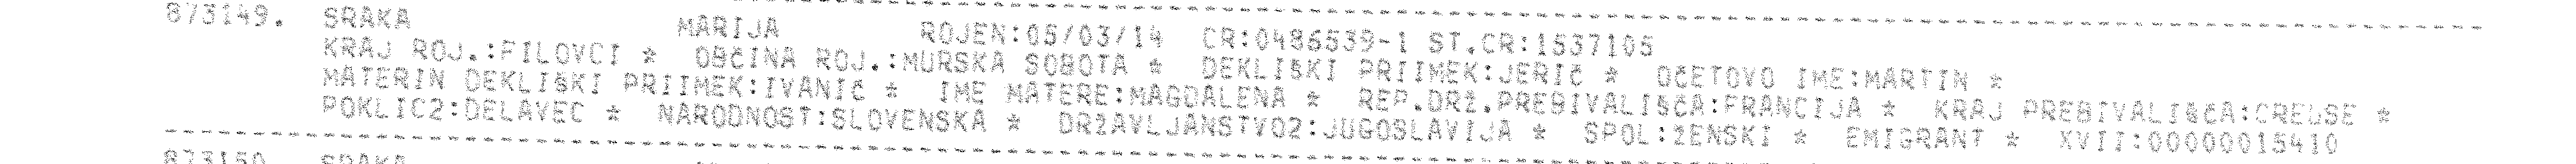 873149. SRAKA MARIJA ROJEN:05/03/14 CR:0486539-1 ST.CR:1537105
KRAJ ROJ.:FILOVCI * OBČINA ROJ.:MURSKA SOBOTA * DEKLIŠKI PRIIMEK:JERIČ * OČETOVO IME:MARTIN *
MATERIN DEKLIŠKI PRIIMEK:IVANIČ * IME MATERE:MAGDALENA * REP.DRŽ.PREBIVALIŠČA:FRANCIJA * KRAJ PREBIVALIŠČA:CREUSE *
POKLIC2:DELAVEC * NARODNOST:SLOVENSKA * DRŽAVLJANSTVO2:JUGOSLAVIJA * SPOL:ŽENSKI * EMIGRANT * XVII:00000015410
873150. SRAKA